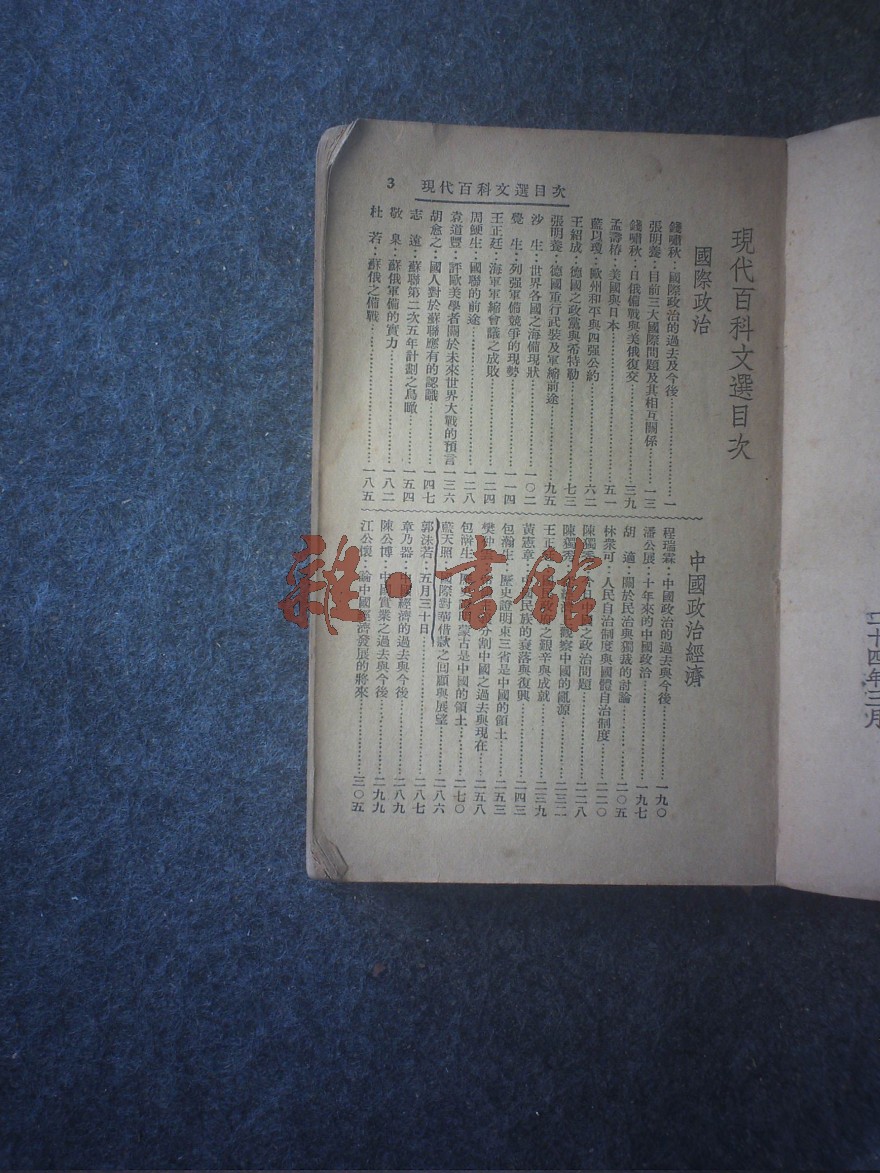 現代百科文選目次
國際政治
錢嘯秋・國際政治的過去及今後 一
張明養・目前三大國際問題及其相互關係 一三
錢嘯秋・日俄備戰與美俄復交 三九
孟壽椿・美國與日本 五一
藍以瓊・歐州和平與四强公約 六二
王紹成・德國之政黨與希特勒 七三
張明養・德國重行武裝及軍縮前途 九五
沙 生・世界各國之海備現狀 一〇二
覺 生・列强軍備競爭的現勢 一一四
王正廷・海軍軍縮會議之成敗 一二四
周鯁生・國聯的前途 一二八
袁道豐・評歐美學者關於未來世界大戰的預言 一三六
胡愈之・國人對於蘇聯應有的認識 一四七
志 遠・蘇聯第二次五年計劃之鳥瞰 一五四
敬 臬・蘇俄軍備的實力 一八二
杜 若・蘇俄之備戰 一八五
中國政治經濟
程瑞霖・中國政治的過去與今後 一九〇
潘公展・十年來的中國政治 一九七
胡 適・關於民治與獨裁的討論 二〇五
林衆可・人民自治制度與國體自治制度 二二〇
陳獨秀 之政治問題 二二八
陳獨秀 觀察中國的亂源 二三二
王正 之艱辛與成就 二三九
黃憲章 民族的衰落與復興 二四三
包瀚生・歷史證明東三省是中國的領土 二五三
樊仲 分割中國之過去與現在 二五八
包瀚生 蒙古是中國的領土 二七〇
藍天照 國際對華借款之回顧與展望 二八六
郭沫若・五月三十日 二八七
章乃器 經濟的過去與今後 二八九
陳公博・中國實業之過去與今後 二九九
江公懷・論中國經濟發展的將來 三〇五
現代百科文選目次
3
二十四年三月
雜・書館